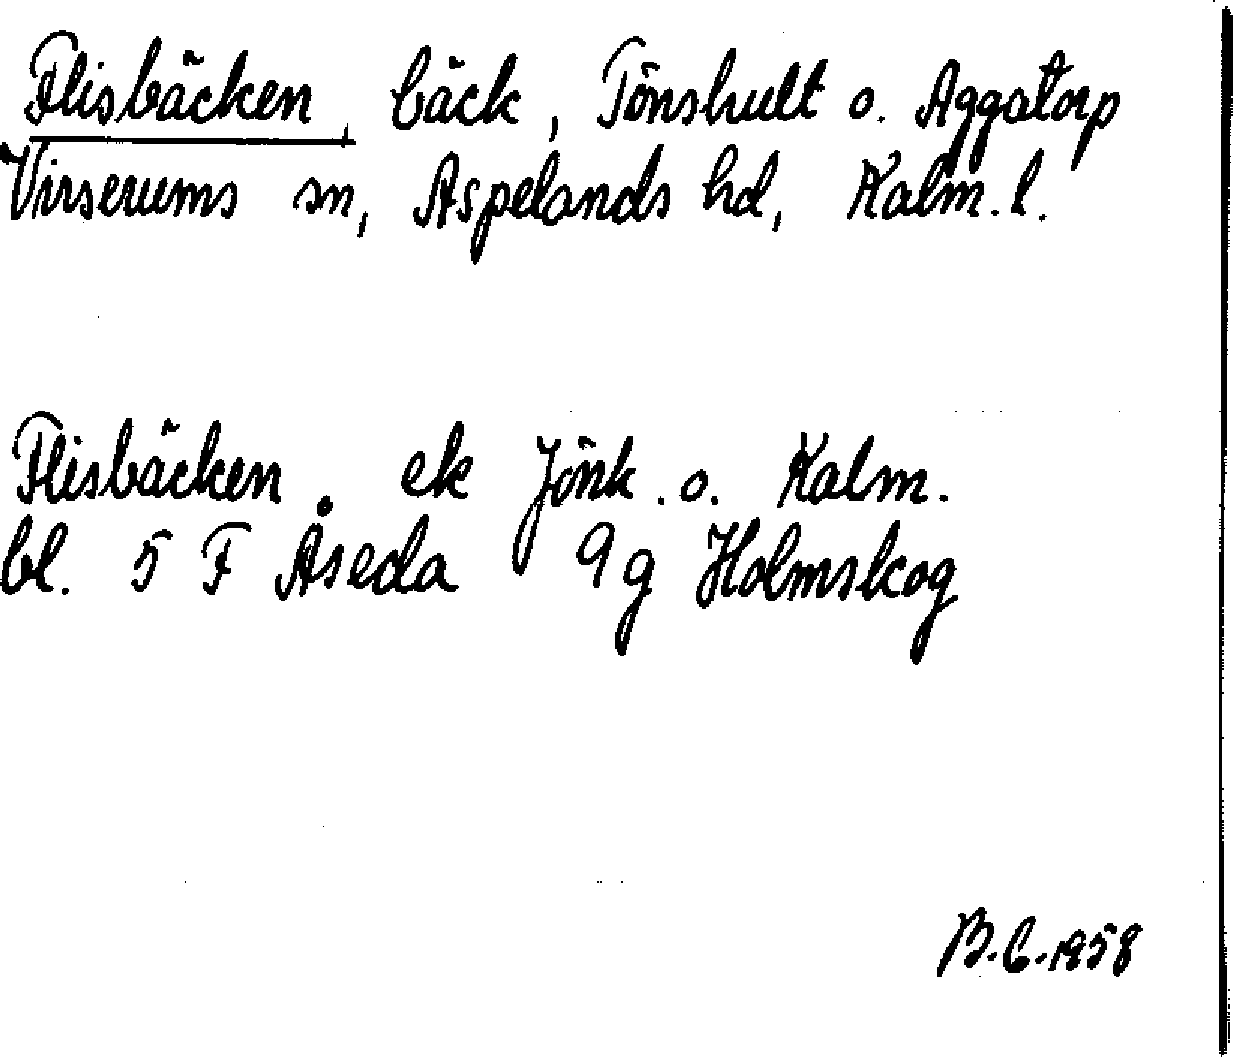 Flisbäcken, bäck, Tönshult o. Aggatorp
Virserums sn, Aspelands hd, Kalm. l.
Flisbäcken. ek Jönk. o. Kalm.
bl. 5 F Åseda 9g Holmskog
B.G.1958